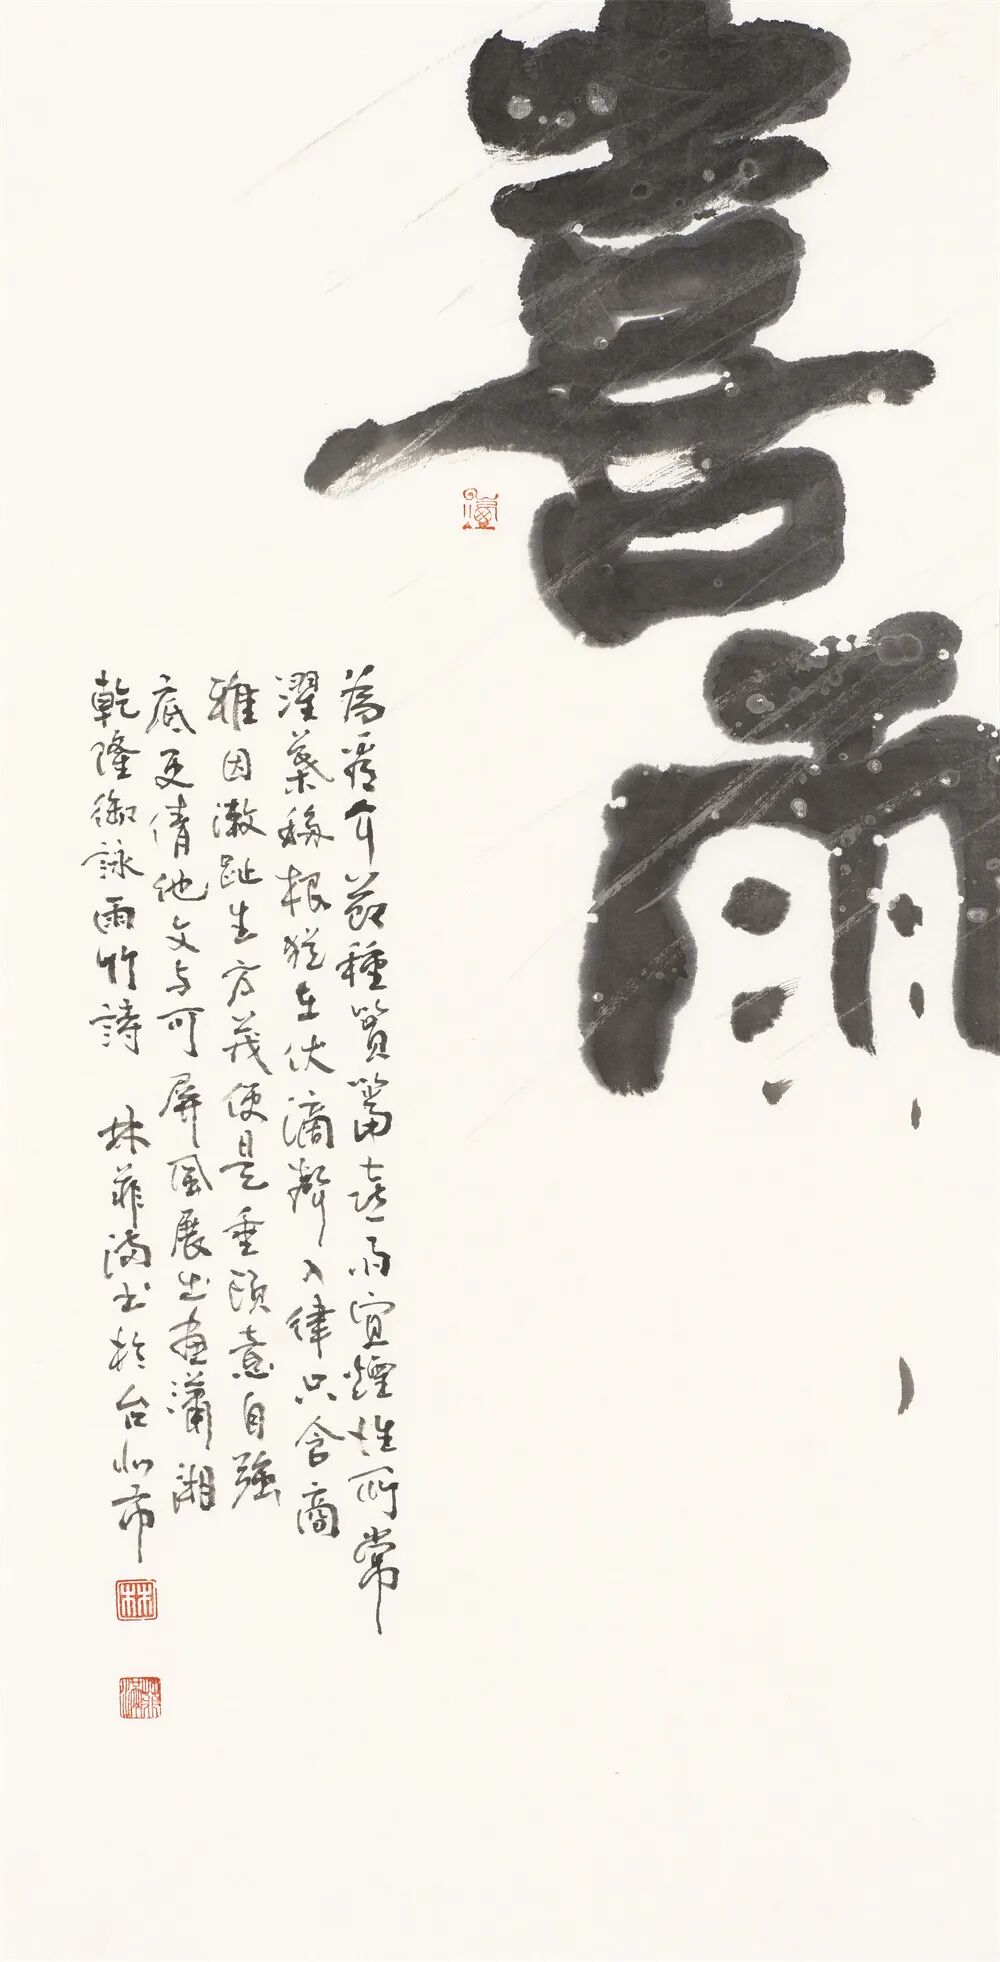 喜雨
為看个節種篔簹喜雨宜煙性所常
濯葉移根猶在伏滴聲入律只含商
雅因漱趾生方茂便是垂頭意自強
底更倩他文与可屏風展出畫瀟湘
乾隆御詠雨竹詩 林菲書於台北市
林